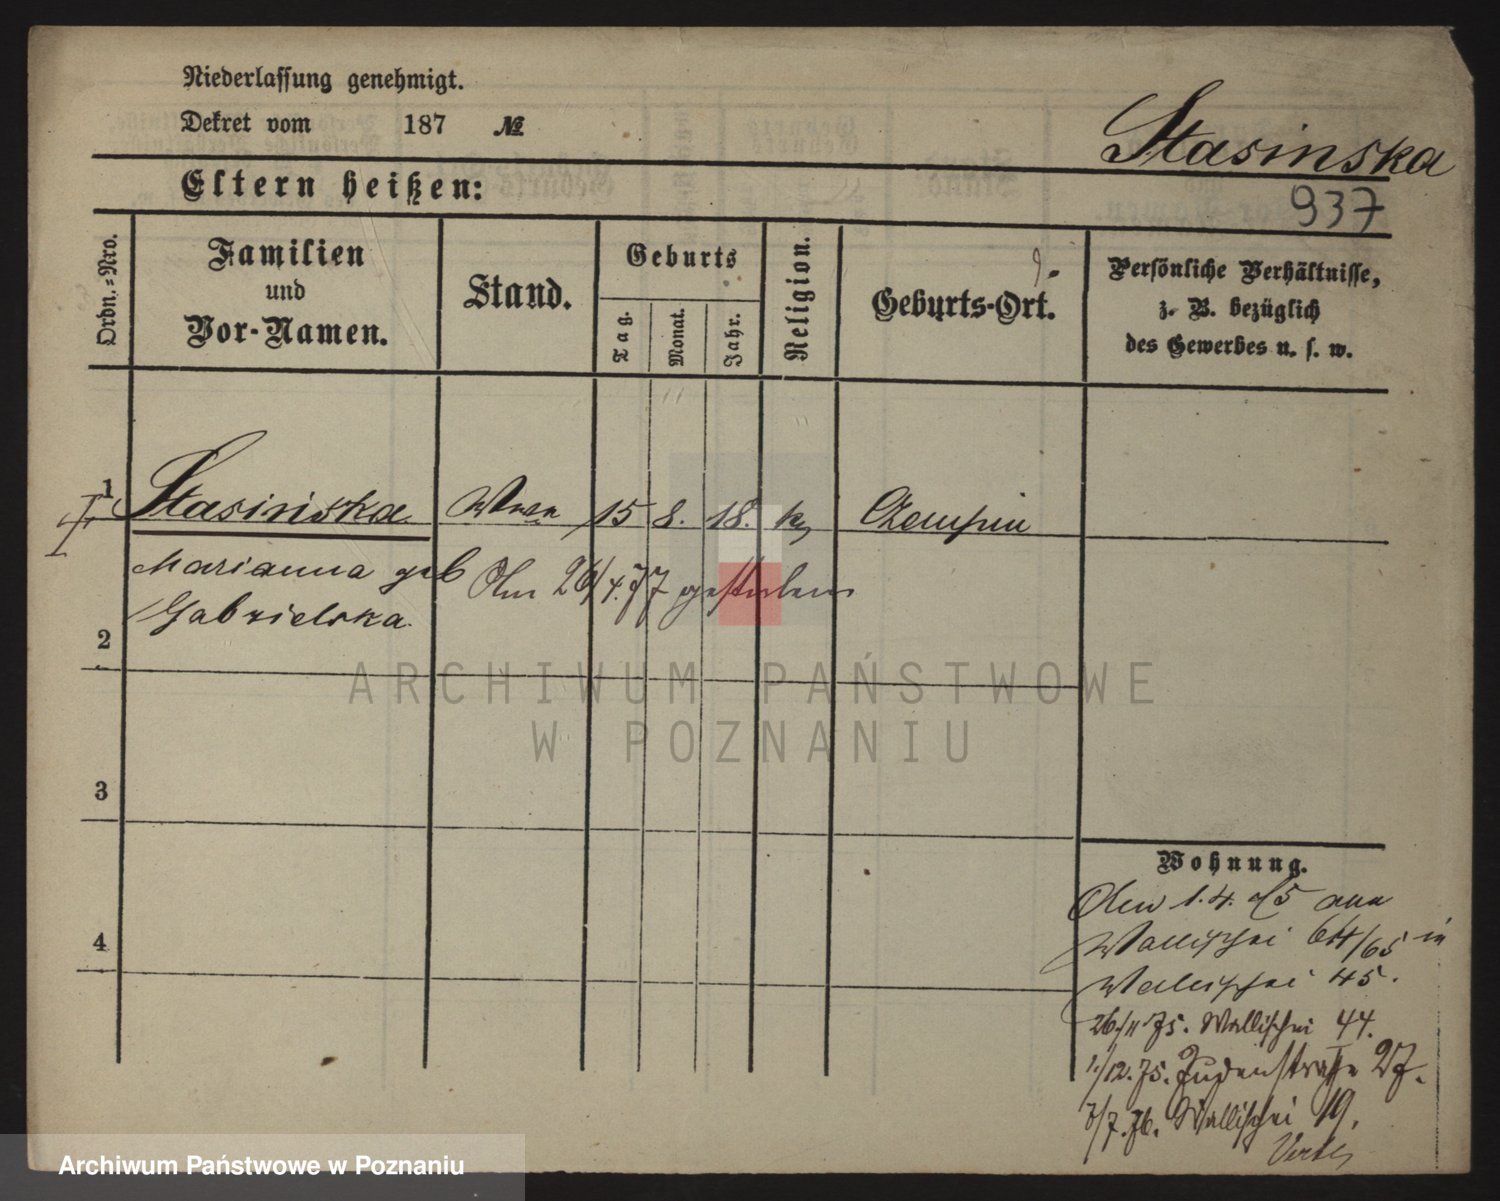 Niederlassung genehmigt.
Dekret vom 187 №
Stasinska
Eltern heißen:
937
Ordn.=Nro.
Familien
und
Vor-Namen.
Stand.
Geburts
Tag.
Monat.
Jahr.
Religion.
Geburts-Ort.
Persönliche Verhältnisse,
z. B. bezüglich
des Gewerbes u. s. w.
1 Stasinska 15 8. 18. k
Marianna geb
Gabrielska.
26/4.77 gestorben
2
3
4
Wohnung.
1. 4. 75
Wallischei 64/65 in
Wallischei 45.
26/11 75. Wallischei 44.
1/12. 75. Judenstraße 27.
7/7. 76. Wallischei 19.
ARCHIWUM PAŃSTWOWE
W POZNANIU
Archiwum Państwowe w Poznaniu